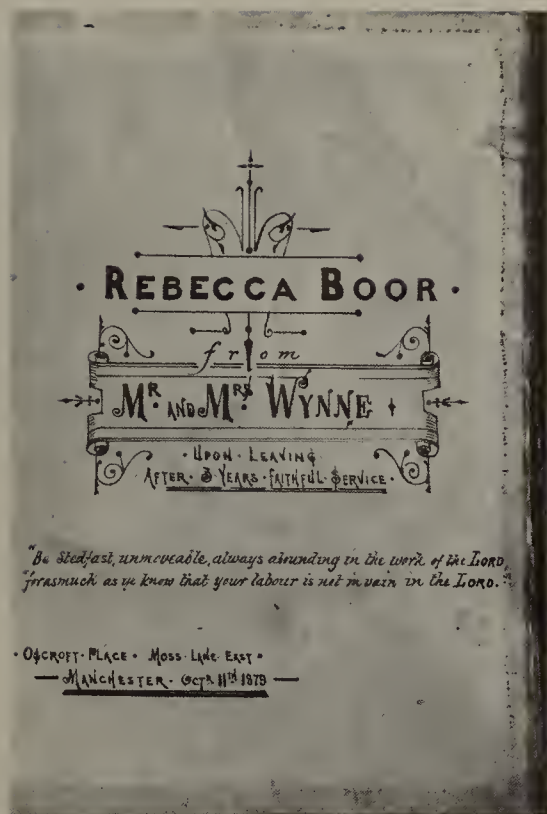 · REBECCA BOOR ·
from
MR. AND MRS. WYNNE
· UPON · LEAVING ·
AFTER · 3 · YEARS · FAITHFUL · SERVICE ·
"Be Stedfast, unmoveable, always abounding in the work of the LORD,
"forasmuch as ye know that your labour is not in vain in the LORD."
· OSCROFT · PLACE · MOSS · LANE · EAST ·
— MANCHESTER · OCTR. 11TH 1879 —